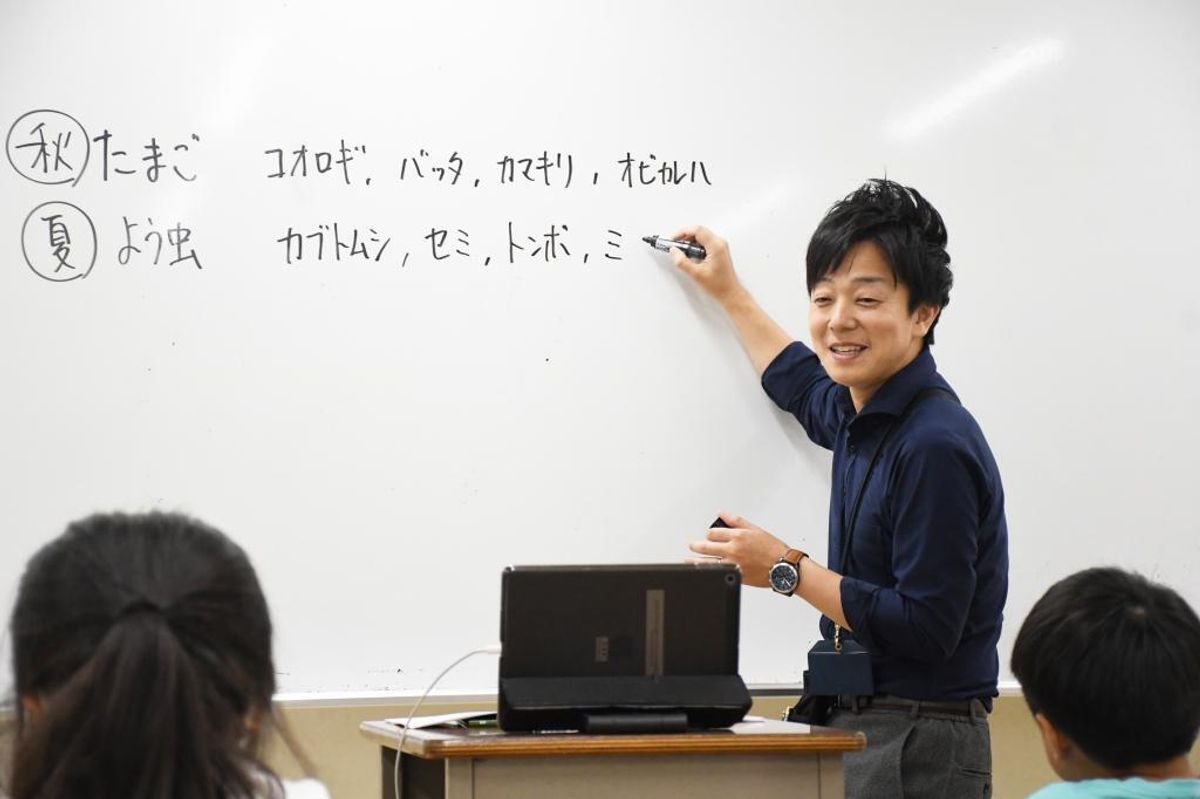 秋 たまご コオロギ, バッタ, カマキリ, オビカレハ
夏 よう虫 カブトムシ, セミ, トンボ, ミ